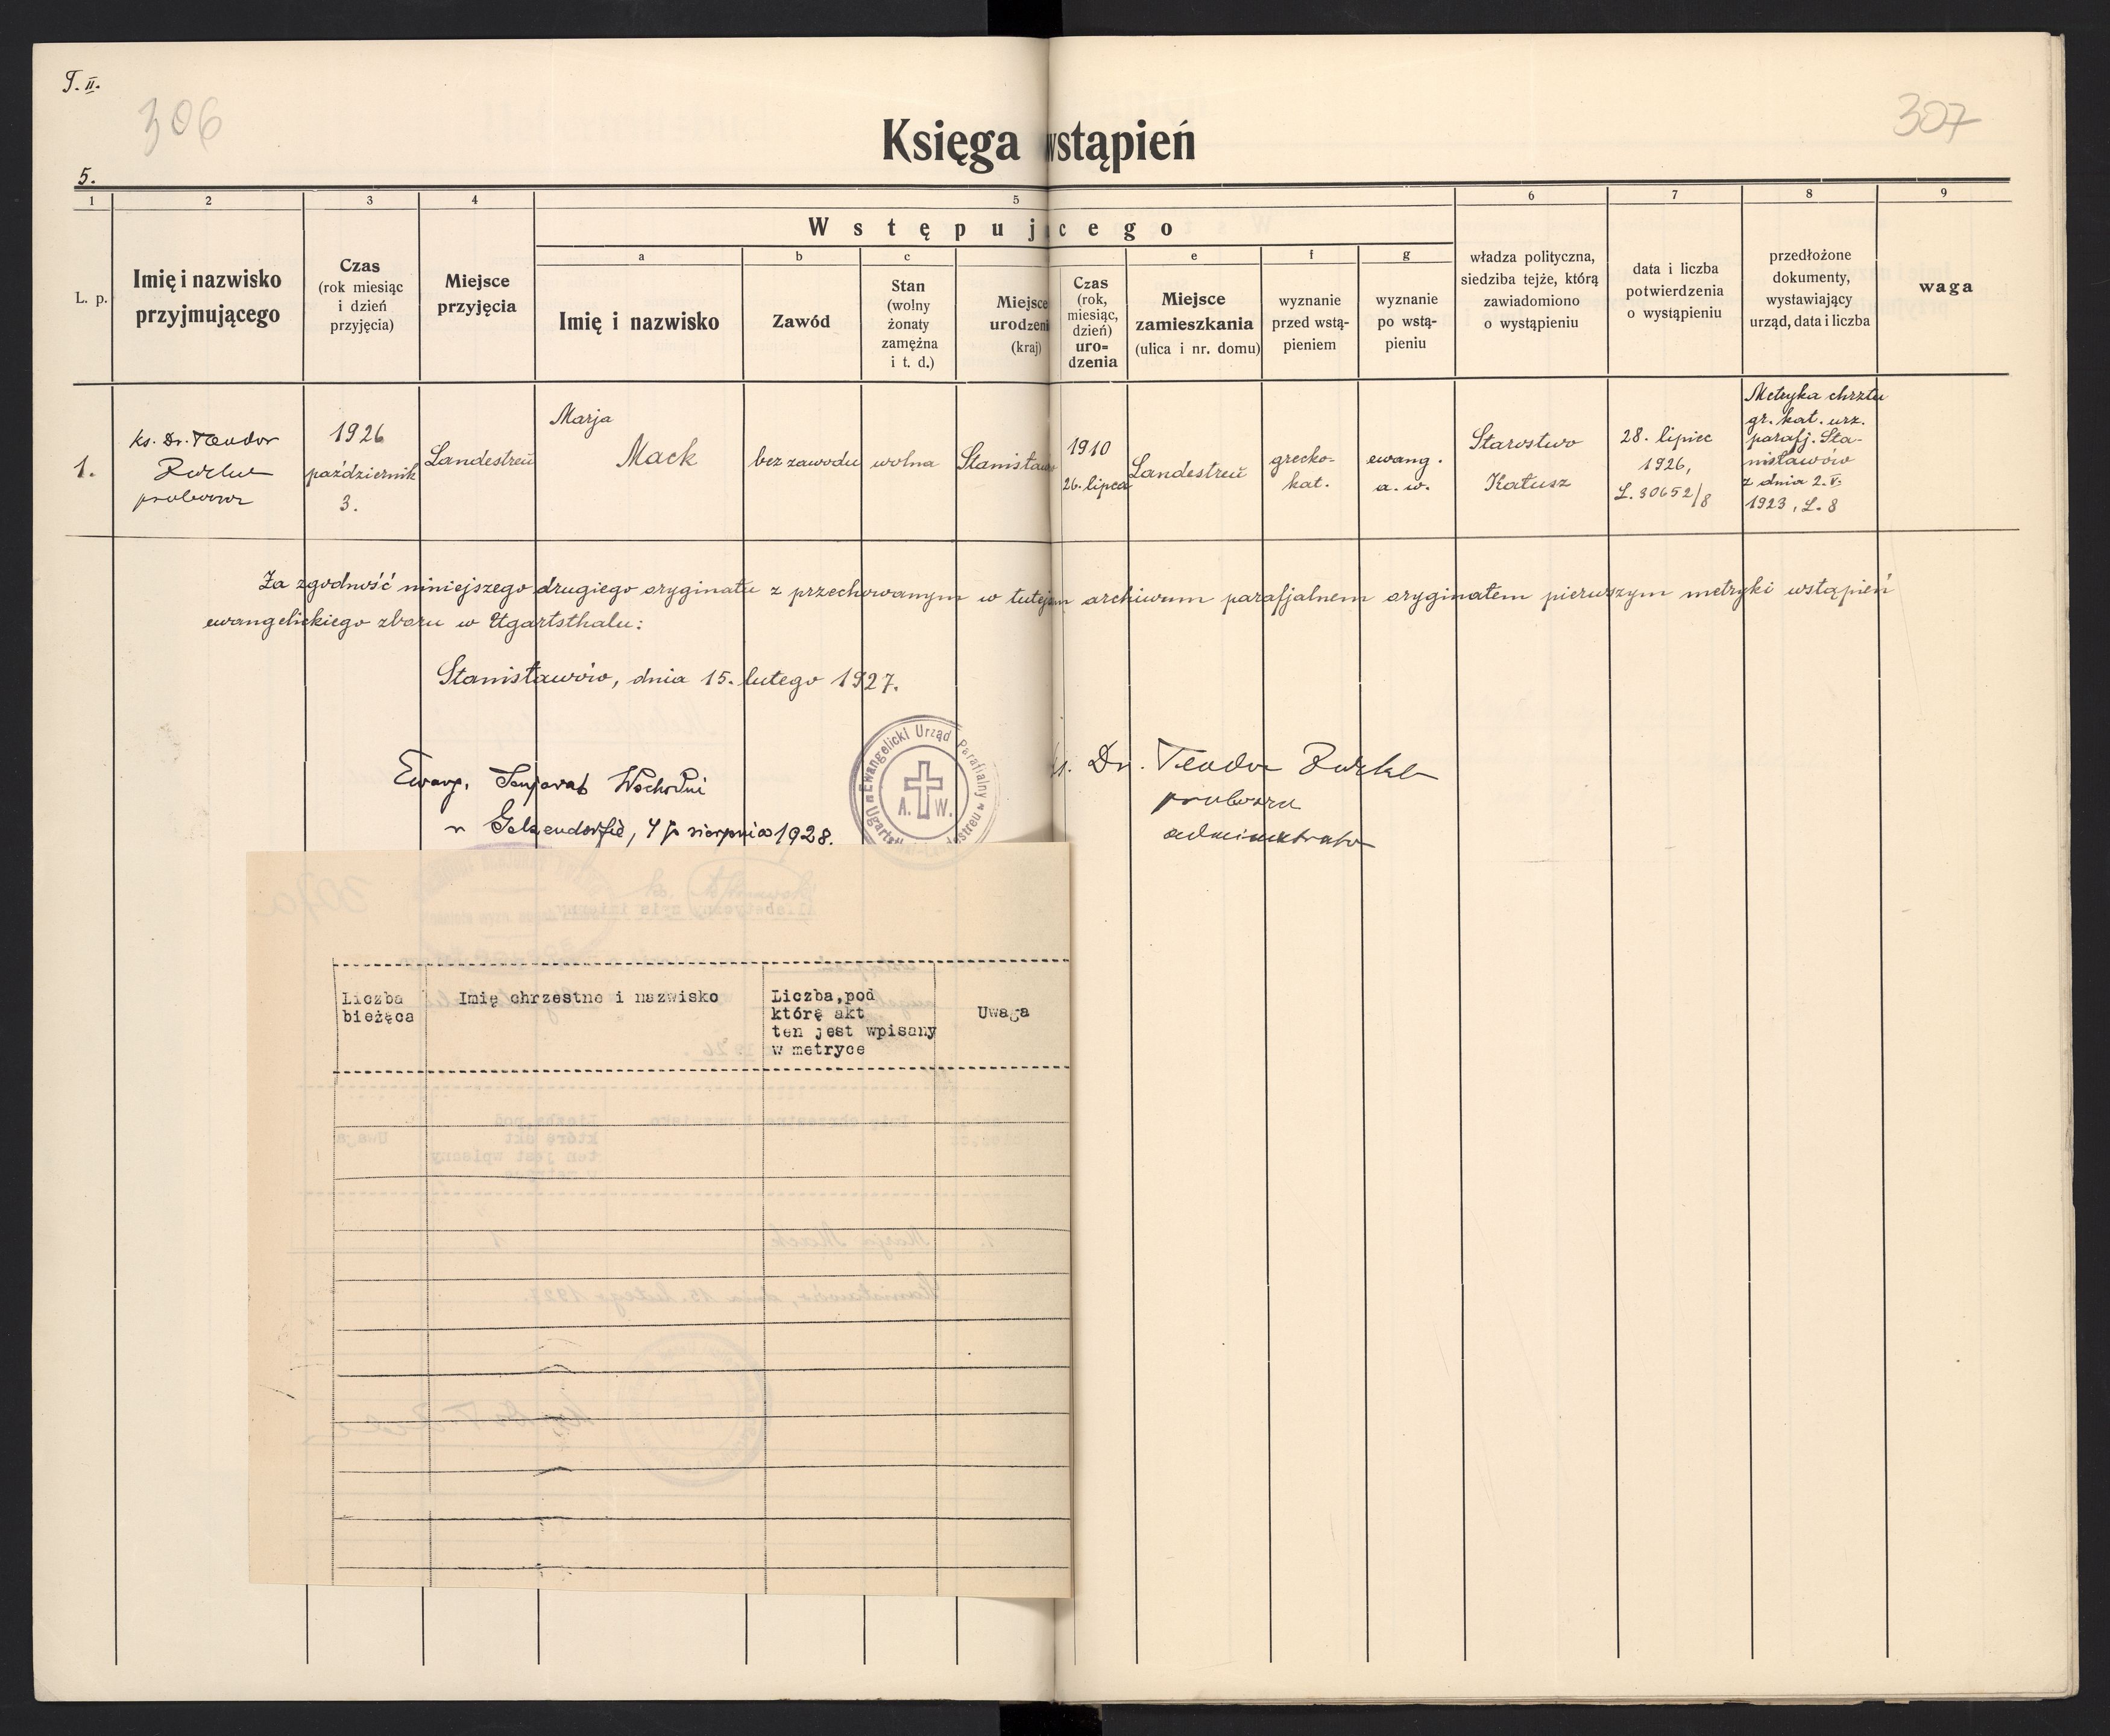 T. II.
306
307
Księga wstąpień
5.
1 2 3 4 5 6 7 8 9
Wstępującego
a b c e f g
L. p.
Imię i nazwisko
przyjmującego
Czas
(rok miesiąc
i dzień
przyjęcia)
Miejsce
przyjęcia
Imię i nazwisko
Zawód
Stan
(wolny
żonaty
zamężna
i t. d.)
Miejsce
urodzeni
(kraj)
Czas
(rok,
miesiąc,
dzień)
uro=
dzenia
Miejsce
zamieszkania
(ulica i nr. domu)
wyznanie
przed wstą-
pieniem
wyznanie
po wstą-
pieniu
władza polityczna,
siedziba tejże, którą
zawiadomiono
o wystąpieniu
data i liczba
potwierdzenia
o wystąpieniu
przedłożone
dokumenty,
wystawiający
urząd, data i liczba
waga
1.
ks. Dr. Teodor
proboszcz
1926
październik
3.
Landestreu
Marja
Mack
bez zawodu
wolna
Stanisław
1910
26. lipca
Landestreu
grecko-
kat.
ewang.
a. w.
Starostwo
Kałusz
28. lipiec
1926,
L. 30652/8
Metryka chrztu
gr. kat. urz.
parafj. Sta-
nisławów
z dnia 2. V.
1923, L. 8
Za zgodność niniejszego drugiego oryginału z przechowanym w tutejszym archiwum parafjalnem oryginałem pierwszym metryki wstąpień
ewangelickiego zboru w Ugartsthalu:
Stanisławów, dnia 15. lutego 1927.
Ewangelicki Urząd Parafialny
A. W.
Ewang. Senjorat Wschodni
w Gelsendorfie, 4 sierpnia 1928.
Dr. Teodor
proboszcz
administrator
Liczba
bieżąca
Imię chrzestne i nazwisko
Liczba,pod
którę akt
ten jest wpisany
w metryce
Uwaga